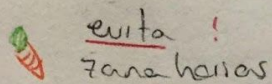 evita !
zanahorias